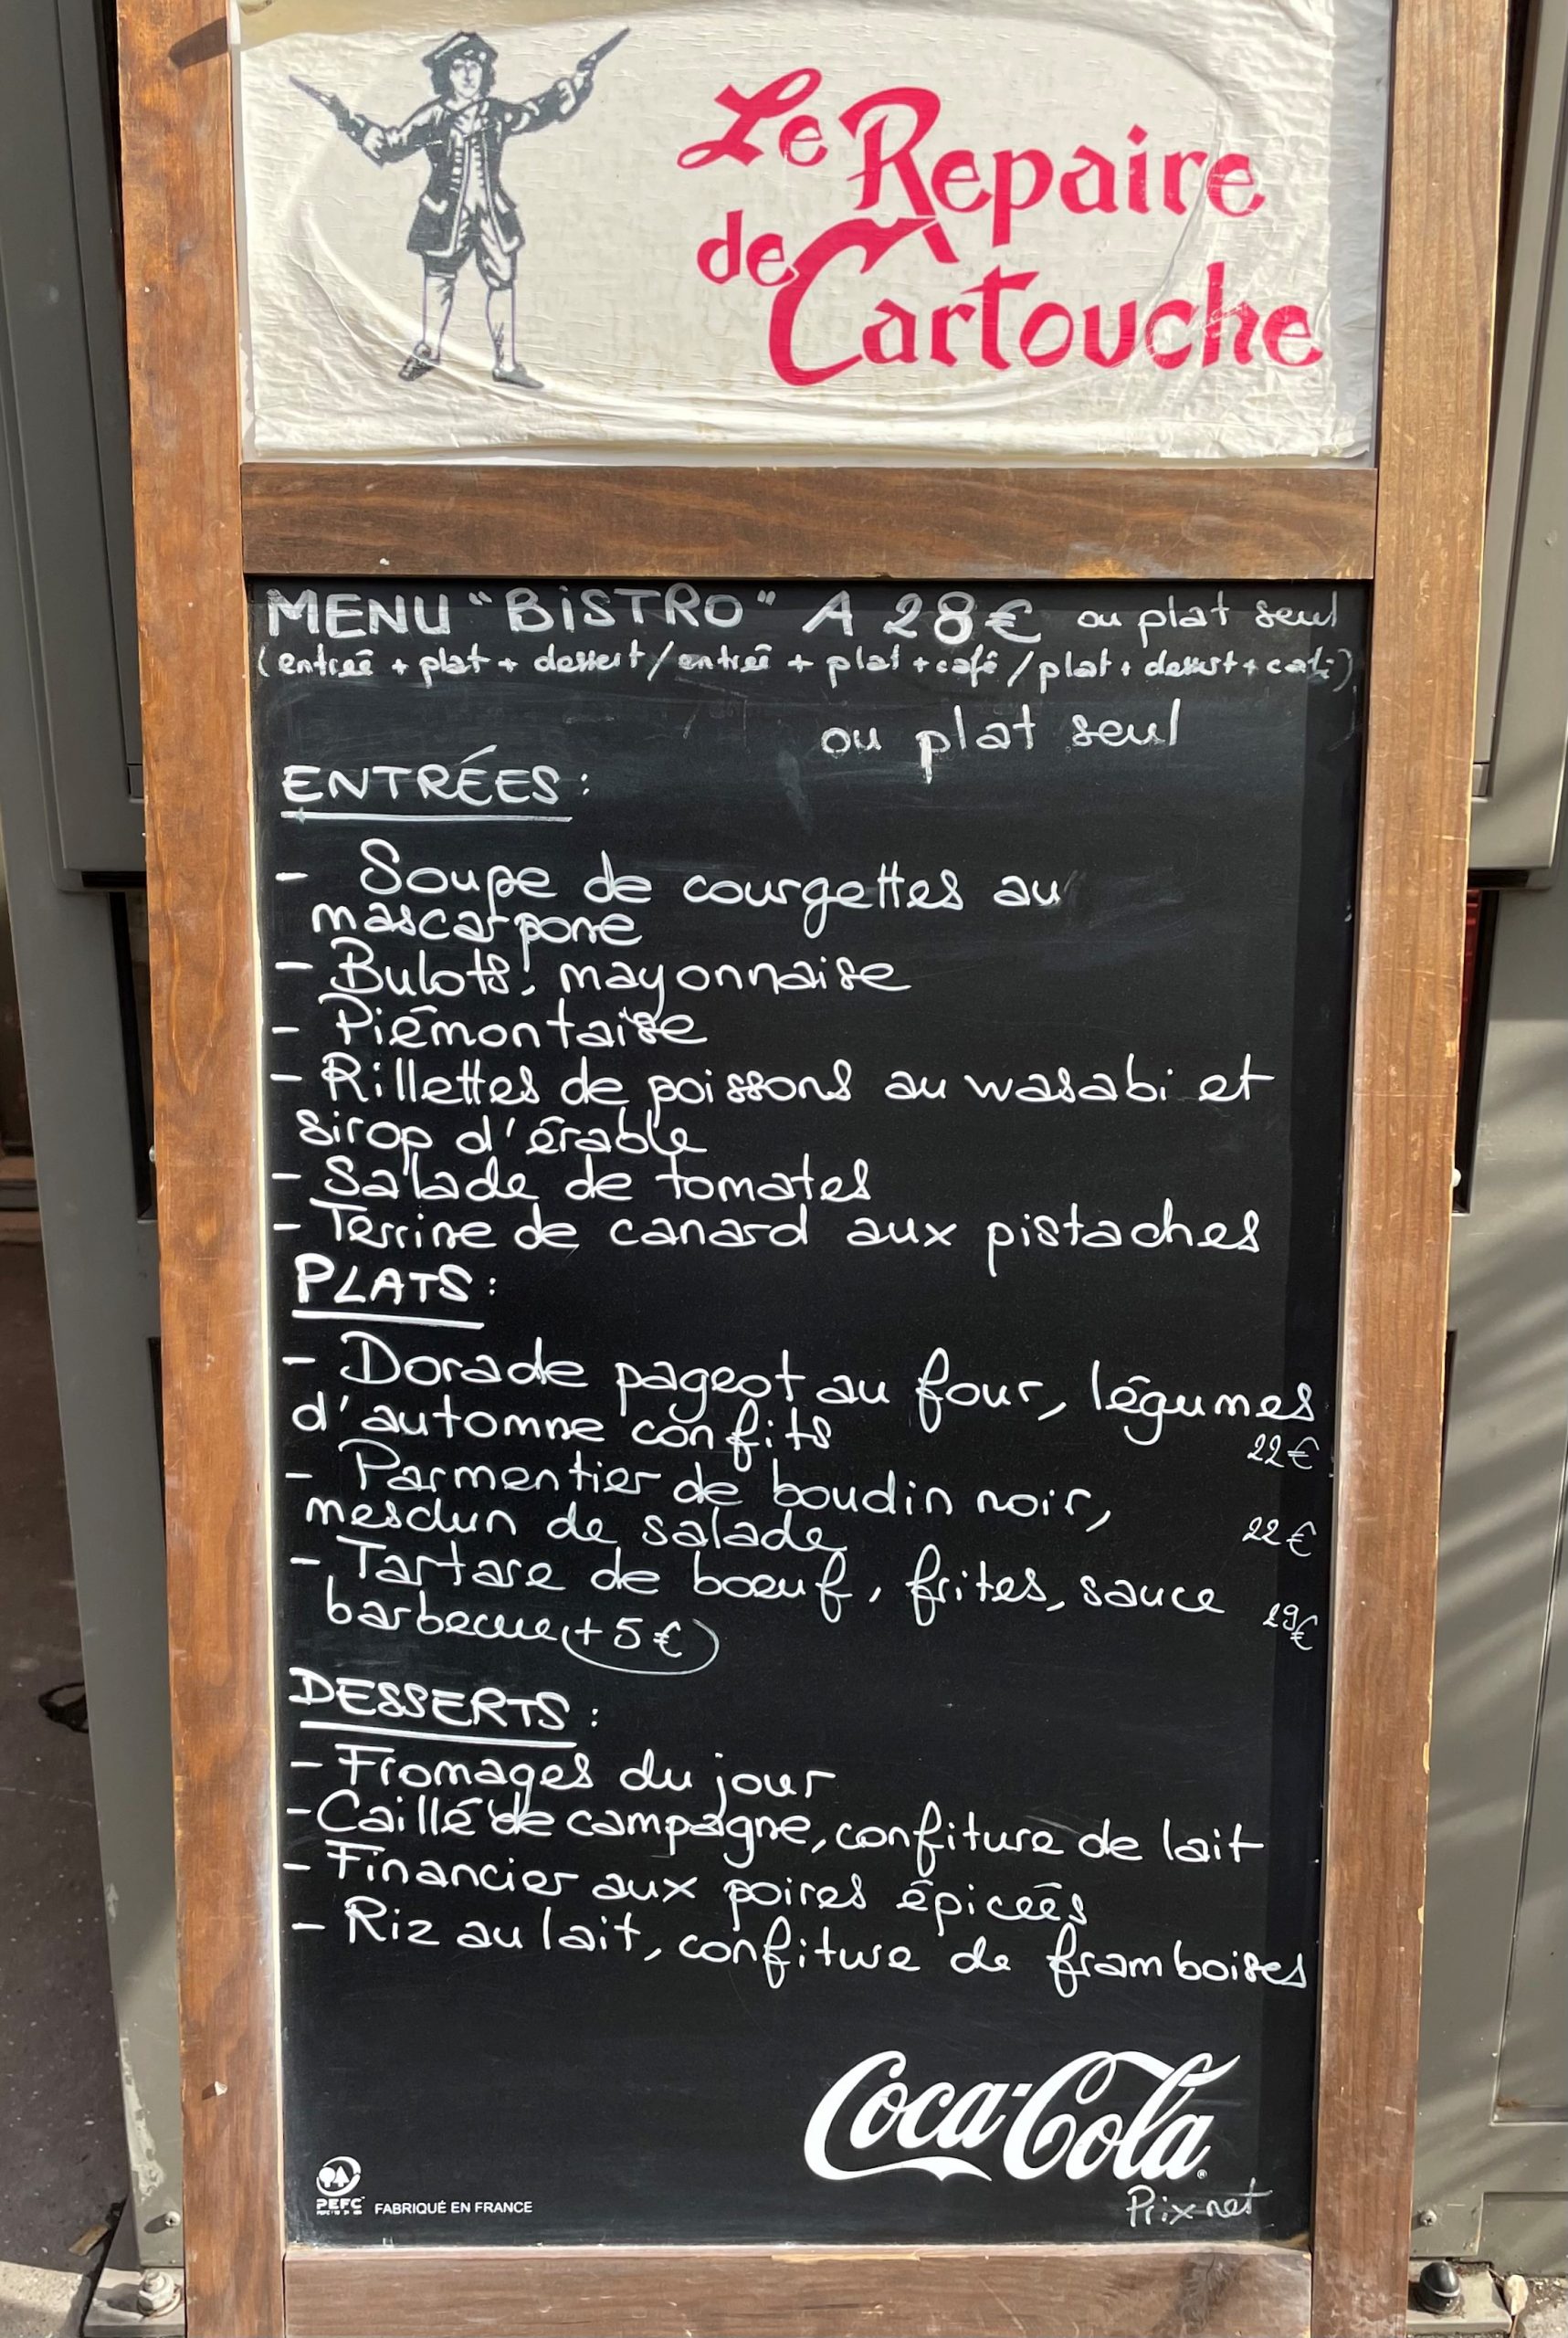 Le Repaire
de Cartouche
MENU "BiSTRO" A 28€ ou plat seul
(entrée + plat + dessert / entrée + plat + café / plat + dessert + café)
ou plat seul
ENTRÉES :
- Soupe de courgettes au
mascarpone
- Bulots, mayonnaise
- Piémontaise
- Rillettes de poissons au wasabi et
sirop d'érable
- Salade de tomates
- Terrine de canard aux pistaches
PLATS :
- Dorade pageot au four, légumes
d'automne confits 22€
- Parmentier de boudin noir,
mesclun de salade 22€
- Tartare de boeuf, frites, sauce
barbecue (+5€) 29€
DESSERTS :
- Fromages du jour
- Caillé de campagne, confiture de lait
- Financier aux poires épicées
- Riz au lait, confiture de framboises
Coca-Cola®
PEFC FABRIQUÉ EN FRANCE
Prix net